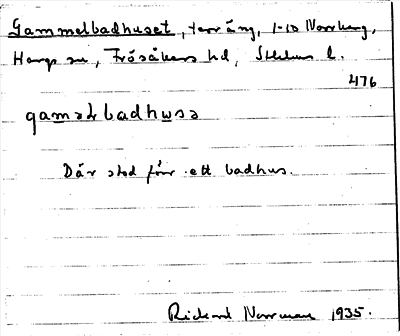 Gammelbadhuset, terräng, 1-10 Norrberg,
Hargs sn, Frösåkers hd, Sthlms l.
476
gaməlbadhusə
Där stod förr ett badhus.
Rickard Norrman 1935.